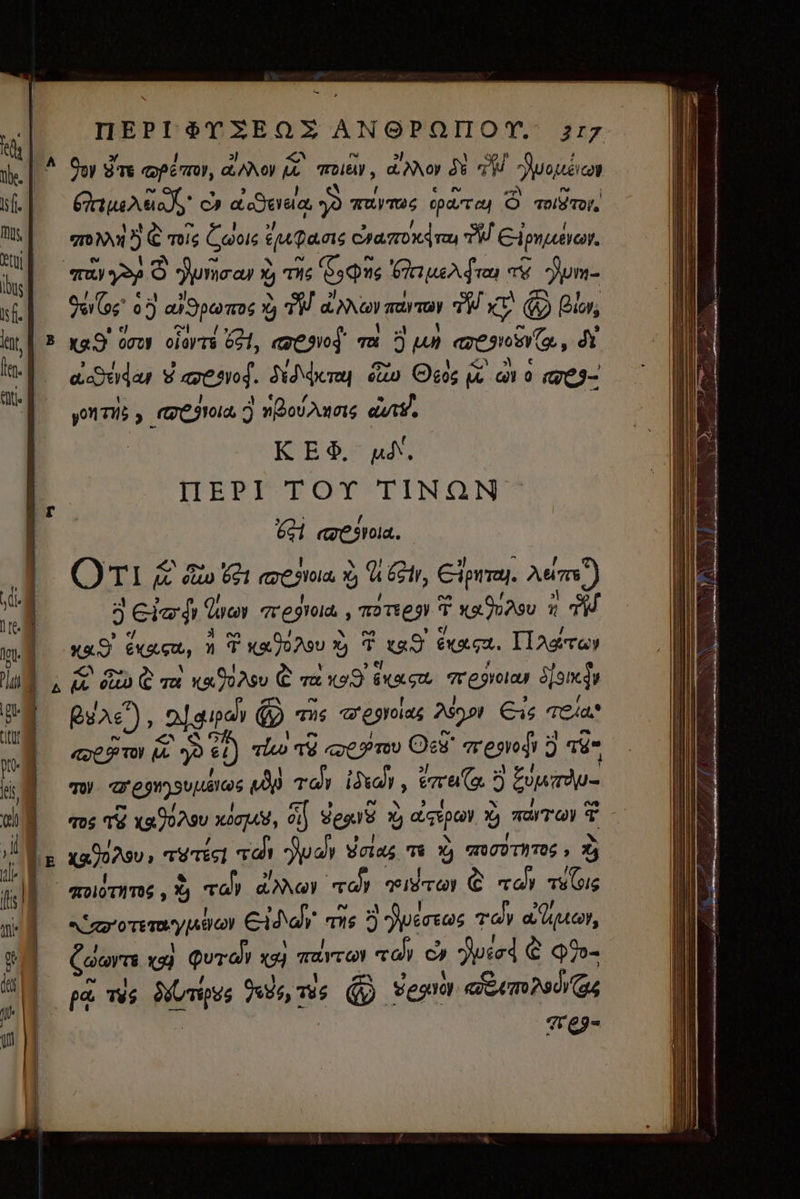 ΠΕΡΙ ΦΥΣΕΩΣ ΑΝΘΡΩΠΟΥ. 317
A θον οὔτε πρέπον, ἄλλον μὲν ποιεῖν, ἄλλον δὲ τῶν γινομένων
ἐπιμελεῖσθαι· ἐν ἀσθενείᾳ γὰρ πάντως ὁρᾶται τὸ τοιοῦτον,
πολλὴ δὲ καὶ τοῖς ζώοις ἔμφασις ἐναπόκειται τῶν εἰρημένων.
πᾶν γὰρ τὸ γεννῆσαν καὶ τῆς τροφῆς ἐπιμελεῖται τοῦ γεννη-
θέντος· ὁ δὲ ἄνθρωπος καὶ τῶν ἄλλων πάντων τῶν κατὰ τὸν βίον,
B καθ' ὅσον οἷόντέ ἐστι, προνοεῖ· τὰ δὲ μὴ προνοοῦντα, δι'
ἀσθένειαν οὐ προνοεῖ. δέδεικται οὖν Θεὸς μὲν ὢν ὁ προ-
νοητὴς, πρόνοια δὲ ἡ βούλησις αὐτοῦ.
ΚΕΦ. μδ.
ΠΕΡΙ ΤΟΥ ΤΙΝΩΝ
Γ ἐστὶ πρόνοια.
ΟΤΙ μὲν οὖν ἐστι πρόνοια καὶ τί ἐστιν, εἴρηται. λείπεται
δὲ εἰπεῖν τίνων πρόνοια, πότερον τῶν καθόλου ἢ τῶν
καθ' ἕκαστα, ἢ τῶν καθόλου καὶ τῶν καθ' ἕκαστα. Πλάτων
Δ μὲν οὖν καὶ τὰ καθόλου καὶ τὰ καθ' ἕκαστα πρόνοιαν διοικεῖν
βούλεται, διαιρῶν τὸν τῆς προνοίας λόγον εἰς τρία·
πρῶτον μὲν γὰρ εἶναι τὴν τοῦ πρώτου Θεοῦ· προνοεῖν δὲ τοῦ-
τον προηγουμένως μὲν τῶν ἰδεῶν, ἔπειτα δὲ ξύμπαν-
τος τοῦ καθόλου κόσμου, οἷον οὐρανοῦ καὶ ἀστέρων καὶ πάντων τῶν
E καθόλου, τουτέστι τῶν γενῶν οὐσίας τε καὶ ποσότητος, καὶ
ποιότητος, καὶ τῶν ἄλλων τῶν τοιούτων καὶ τῶν τούτοις
ὑποτεταγμένων εἰδῶν· τῆς δὲ γενέσεως τῶν ἀτόμων,
ζώωντε καὶ φυτῶν καὶ πάντων τῶν ἐν γενέσει καὶ φθο-
ρᾷ τοὺς δευτέρους θεοὺς, τοὺς τὸν οὐρανὸν περιπολοῦντας
προ-